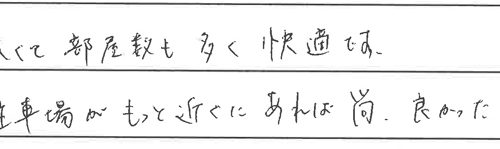 くて 部屋数も 多く 快適です。
車場が もっと近くに あれば 尚、良かった